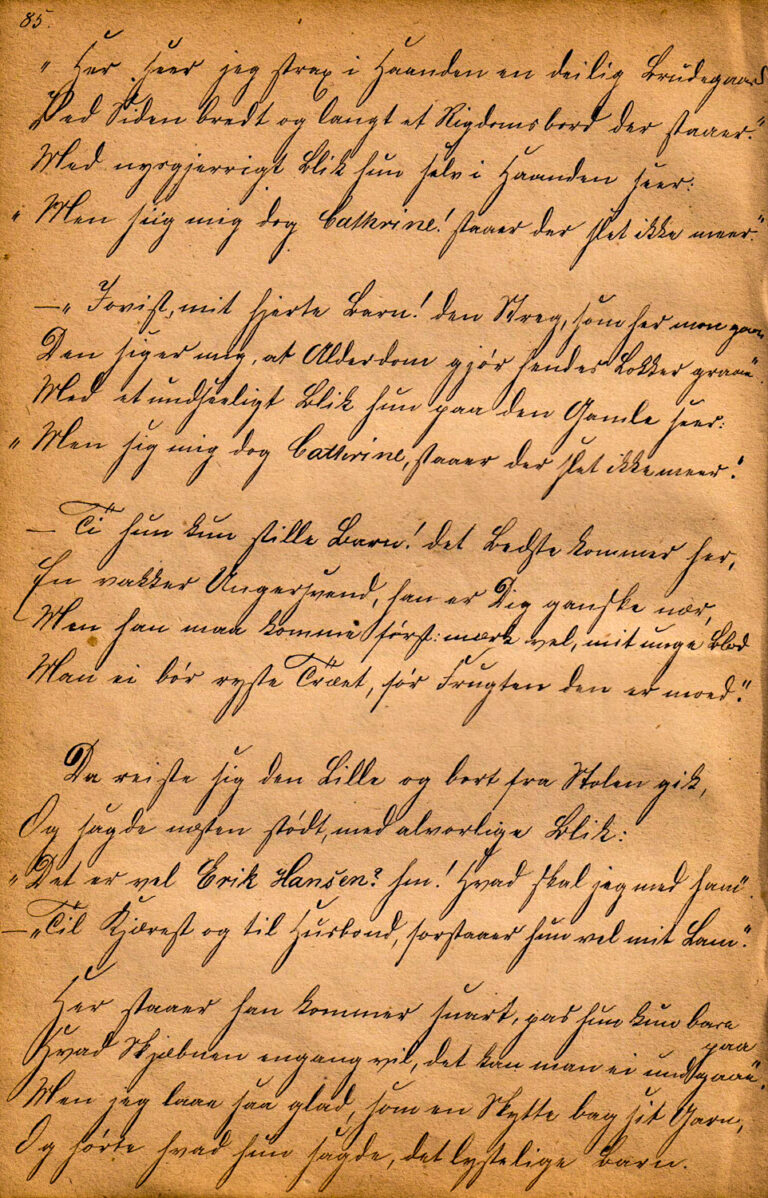 85.
"Her seer jeg strax i Haanden en deilig Brudegaard
Ved Siden bredt og langt et Rigdomsbord der staaer."
Med nysgjerrigt Blik hun selv i Haanden seer:
"Men siig mig dog Cathrine! staaer der slet ikke meer."
—"Jovist, mit hjerte Barn! den Streg, som her mon gaae
Den siger mig, at Alderdom gjør hendes Lokker graae".
Med et undseeligt Blik hun paa den Gamle seer:
"Men sig mig dog Cathrine, staaer der slet ikke meer."
— Ti hun kun stille Barn! det Bedste kommer her,
En vakker Ungersvend, han er Dig ganske nær,
Men han maa komme først: mærk vel, mit unge Blod
Man ei bør ryste Træet, før Frugten den er moed."
Da reiste sig den Lille og bort fra Stolen gik,
Og sagde næsten stødt, med alvorlige Blik:
"Det er vel Erik Hansen? hm! Hvad skal jeg med ham".
—"Til Kjærest og til Husbond, forstaaer hun vel mit Lam."
Her staaer han kommer snart, pas hun kun bare paa
Hvad Skjæbnen engang vil, det kan man ei undgaae".
Men jeg laae saa glad, som en Skytte bag sit Garn,
Og hørte hvad hun sagde, det lystelige Barn.